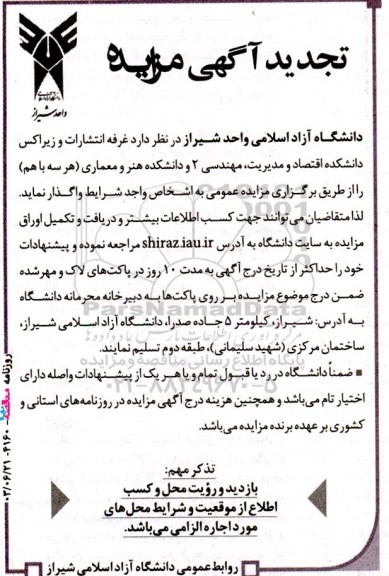 تجدید آگهی مزایده
واحد شیراز
دانشگاه آزاد اسلامی واحد شیراز در نظر دارد غرفه انتشارات و زیراکس
دانشکده اقتصاد و مدیریت، مهندسی ۲ و دانشکده هنر و معماری (هر سه با هم)
را از طریق برگزاری مزایده عمومی به اشخاص واجد شرایط واگذار نماید.
لذا متقاضیان می‌توانند جهت کسب اطلاعات بیشتر و دریافت و تکمیل اوراق
مزایده به سایت دانشگاه به آدرس shiraz.iau.ir مراجعه نموده و پیشنهادات
خود را حداکثر از تاریخ درج آگهی به مدت ۱۰ روز در پاکت‌های لاک و مهر شده
ضمن درج موضوع مزایده بر روی پاکت‌ها به دبیرخانه محرمانه دانشگاه
به آدرس: شیراز، کیلومتر ۵ جاده صدرا، دانشگاه آزاد اسلامی شیراز،
ساختمان مرکزی (شهید سلیمانی)، طبقه دوم تسلیم نمایند.
▪ ضمناً دانشگاه در رد یا قبول تمام و یا هر یک از پیشنهادات واصله دارای
اختیار تام می‌باشد و همچنین هزینه درج آگهی مزایده در روزنامه‌های استانی و
کشوری بر عهده برنده مزایده می‌باشد.
تذکر مهم:
بازدید و رؤیت محل و کسب
اطلاع از موقعیت و شرایط محل‌های
مورد اجاره الزامی می‌باشد.
روابط عمومی دانشگاه آزاد اسلامی شیراز
ParsNamadData
پایگاه اطلاع رسانی مناقصه و مزایده
۰۲۱-۸۸۳۴۹۶۷۰-۵
روزنامه ۴۱۶۰ - ۰۳/۰۶/۲۱